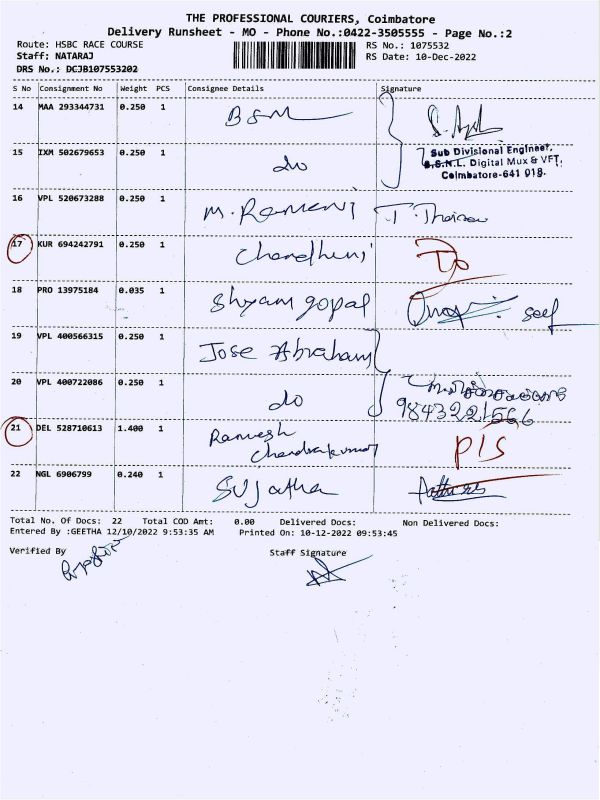 THE PROFESSIONAL COURIERS, Coimbatore
Delivery Runsheet - MO - Phone No.:0422-3505555 - Page No.:2
Route: HSBC RACE COURSE
RS No.: 1075532
Staff: NATARAJ
RS Date: 10-Dec-2022
DRS No.: DCJB107553202
S No Consignment No Weight PCS Consignee Details Signature
14 MAA 293344731 0.250 1 BSNL
15 IXM 502679653 0.250 1 do
Sub Divisional Engineer,
B.S.N.L. Digital Mux & VFT,
Coimbatore-641 018.
16 VPL 520673288 0.250 1 M. Ramani
17 KUR 694242791 0.250 1 Chandhini
18 PRO 13975184 0.035 1 Shyam gopal self
19 VPL 400566315 0.250 1 Jose Abraham
20 VPL 400722086 0.250 1 do
9843221566
21 DEL 528710613 1.400 1 Ramesh Chandrakumar P/S
22 NGL 6906799 0.240 1 Sujatha
Total No. Of Docs: 22 Total COD Amt: 0.00 Delivered Docs: Non Delivered Docs:
Entered By :GEETHA 12/10/2022 9:53:35 AM Printed On: 10-12-2022 09:53:45
Verified By Staff Signature